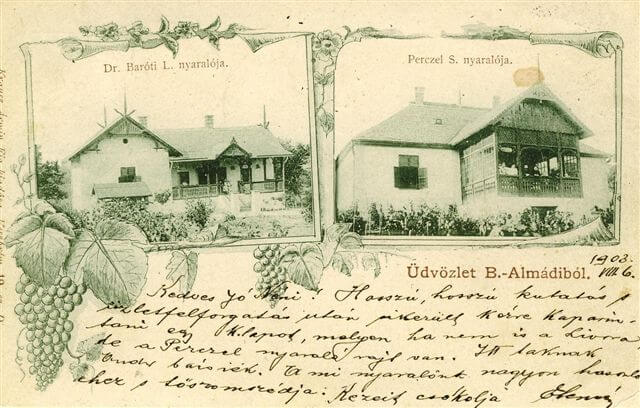 Dr. Baróti L. nyaralója.
Perczel S. nyaralója.
Üdvözlet B.-Almádiból.
1903.
VIII 6.
Kedves Jó Néni! Hosszú, hosszú kutatás s
üzletfelforgatás után sikerült kézre kaparin-
tani egy klapot, melyen ha nem is a
de a Perczel nyaraló rajt van. Itt laknak
A mi nyaralónk nagyon hasonló
ehez s tőszomszédja. Kezeit csókolja